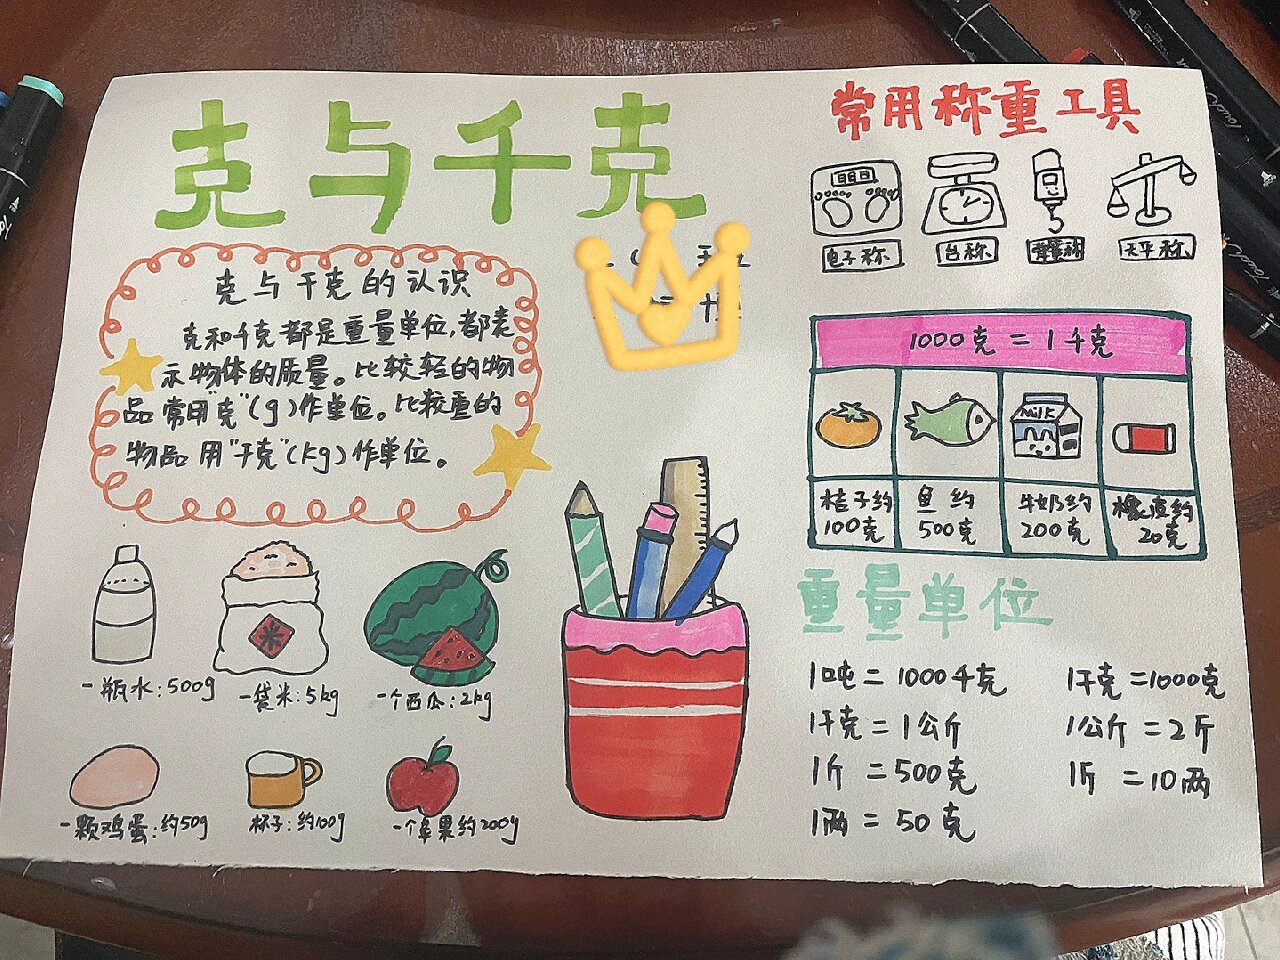 克与千克
克与千克的认识
克和千克都是重量单位,都表
示物体的质量。比较轻的物
品常用"克"(g)作单位。比较重的
物品用"千克"(kg)作单位。
一瓶水:500g
一袋米:5kg
一个西瓜:2kg
一颗鸡蛋:约50g
杯子:约100g
一个苹果约200g
常用称重工具
电子称
台称
天平称
1000克=1千克
Milk
桔子约
100克
鱼约
500克
牛奶约
200克
橡皮约
20克
重量单位
1吨=1000千克
1千克=1000克
1千克=1公斤
1公斤=2斤
1斤=500克
1斤=10两
1两=50克
Touch